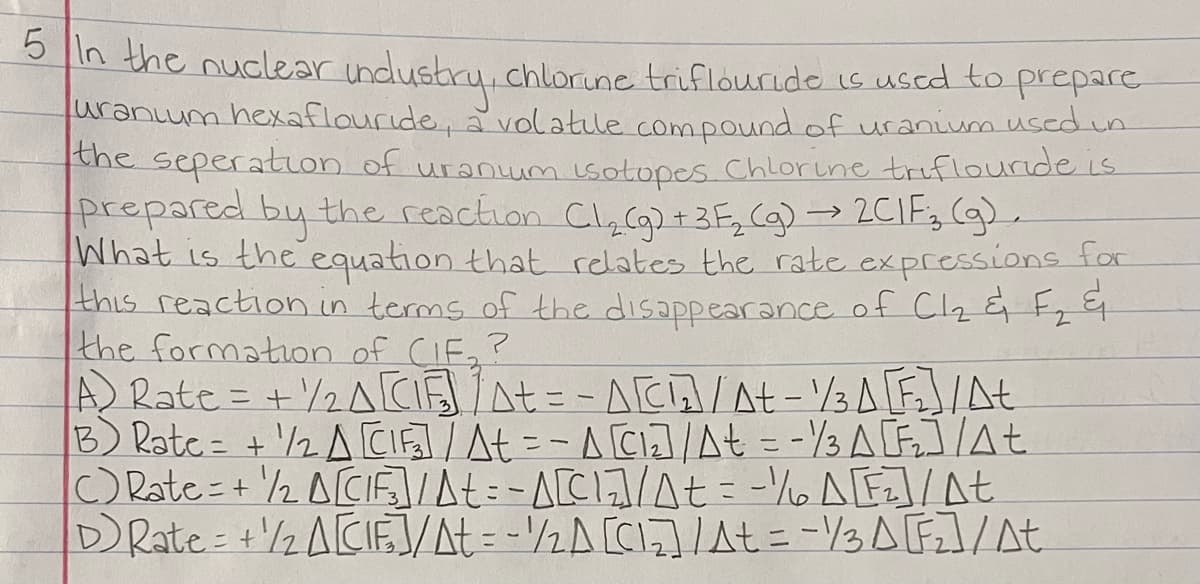 5 In the nuclear industry, chlorine triflouride is used to prepare
uranium hexaflouride, a volatile compound of uranium used in
the seperation of uranium isotopes. Chlorine triflouride is
prepared by the reaction Cl₂(g) + 3F₂(g) → 2ClF₃(g).
What is the equation that relates the rate expressions for
this reaction in terms of the disappearance of Cl₂ & F₂ &
the formation of ClF₃?
A) Rate = + 1/2 Δ[ClF₃]/Δt = - Δ[Cl₂]/Δt - 1/3 Δ[F₂]/Δt
B) Rate = + 1/2 Δ[ClF₃]/Δt = - Δ[Cl₂]/Δt = -1/3 Δ[F₂]/Δt
C) Rate = + 1/2 Δ[ClF₃]/Δt = -Δ[Cl₂]/Δt = -1/6 Δ[F₂]/Δt
D) Rate = + 1/2 Δ[ClF₃]/Δt = -1/2 Δ[Cl₂]/Δt = -1/3 Δ[F₂]/Δt